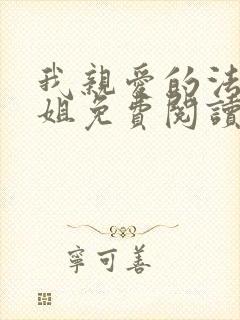 我親愛的法
姐免費閱讀
寧可善